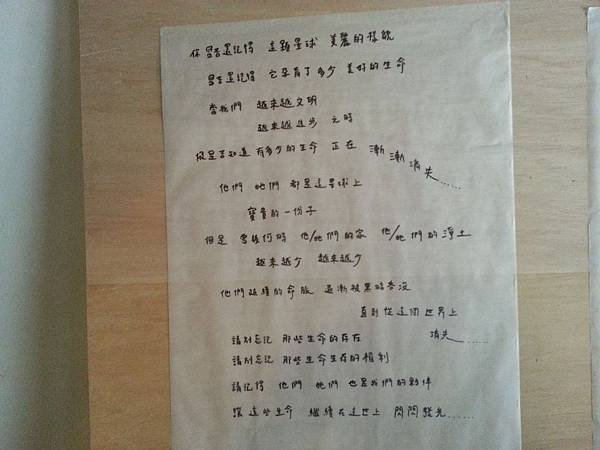 你是否還記得 這顆星球 美麗的樣貌
是否還記得 它孕育了多少 美好的生命
當我們 越來越文明
越來越進步 之時
你是否知道 有多少的生命 正在 漸漸消失……
他們 牠們 都是這星球上
寶貴的一份子
但是 曾幾何時 他/牠們的家 他/牠們的淨土
越來越少 越來越少
他們延續的命脈 逐漸被黑暗吞沒
直到從這個世界上
消失……
請別忘記 那些生命的存在
請別忘記 那些生命生存的權利
請記得 他們 牠們 也是我們的夥伴
讓這些生命 繼續在這世上 閃閃發光……